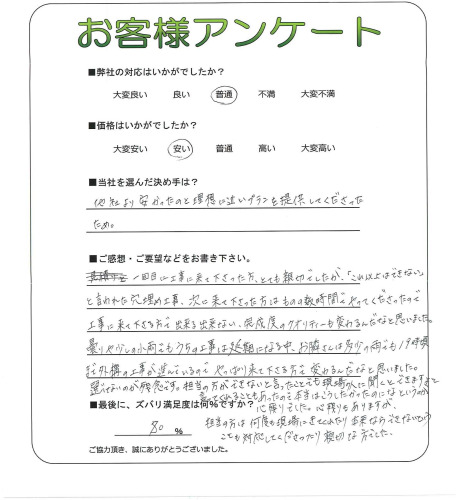 お客様アンケート
■弊社の対応はいかがでしたか？
大変良い 良い 普通 不満 大変不満
■価格はいかがでしたか？
大変安い 安い 普通 高い 大変高い
■当社を選んだ決め手は？
他社より安かったのと理想に近いプランを提供してくださった
ため。
■ご感想・ご要望などをお書き下さい。
一回目に工事に来て下さった方、とても親切でしたが、「これ以上はできない」
と言われた穴埋め工事、次に来て下さった方はものの数時間でやってくださったので
工事に来て下さる方で出来る出来ない、完成度のクオリティーも変わるんだなと思いました。
曇りや少しの小雨でもうちの工事は延期になる中、お隣さんは多少の雨でも19時頃
まで外構の工事が進んでいるので やっぱり来て下さる方で変わるんだなと思いました。
選べないのが残念です。担当の方ができないと言ったことでも現場の人に聞くとできますよと
言ってくれることもあったので本当はこうしたかったのになというのが
心残りでした。心残りもありますが、
担当の方は何度も現場にきてくれたり出来ないという
ことも対応してくださったり親切な方でした。
■最後に、ズバリ満足度は何％ですか？
80 ％
ご協力頂き、誠にありがとうございました。